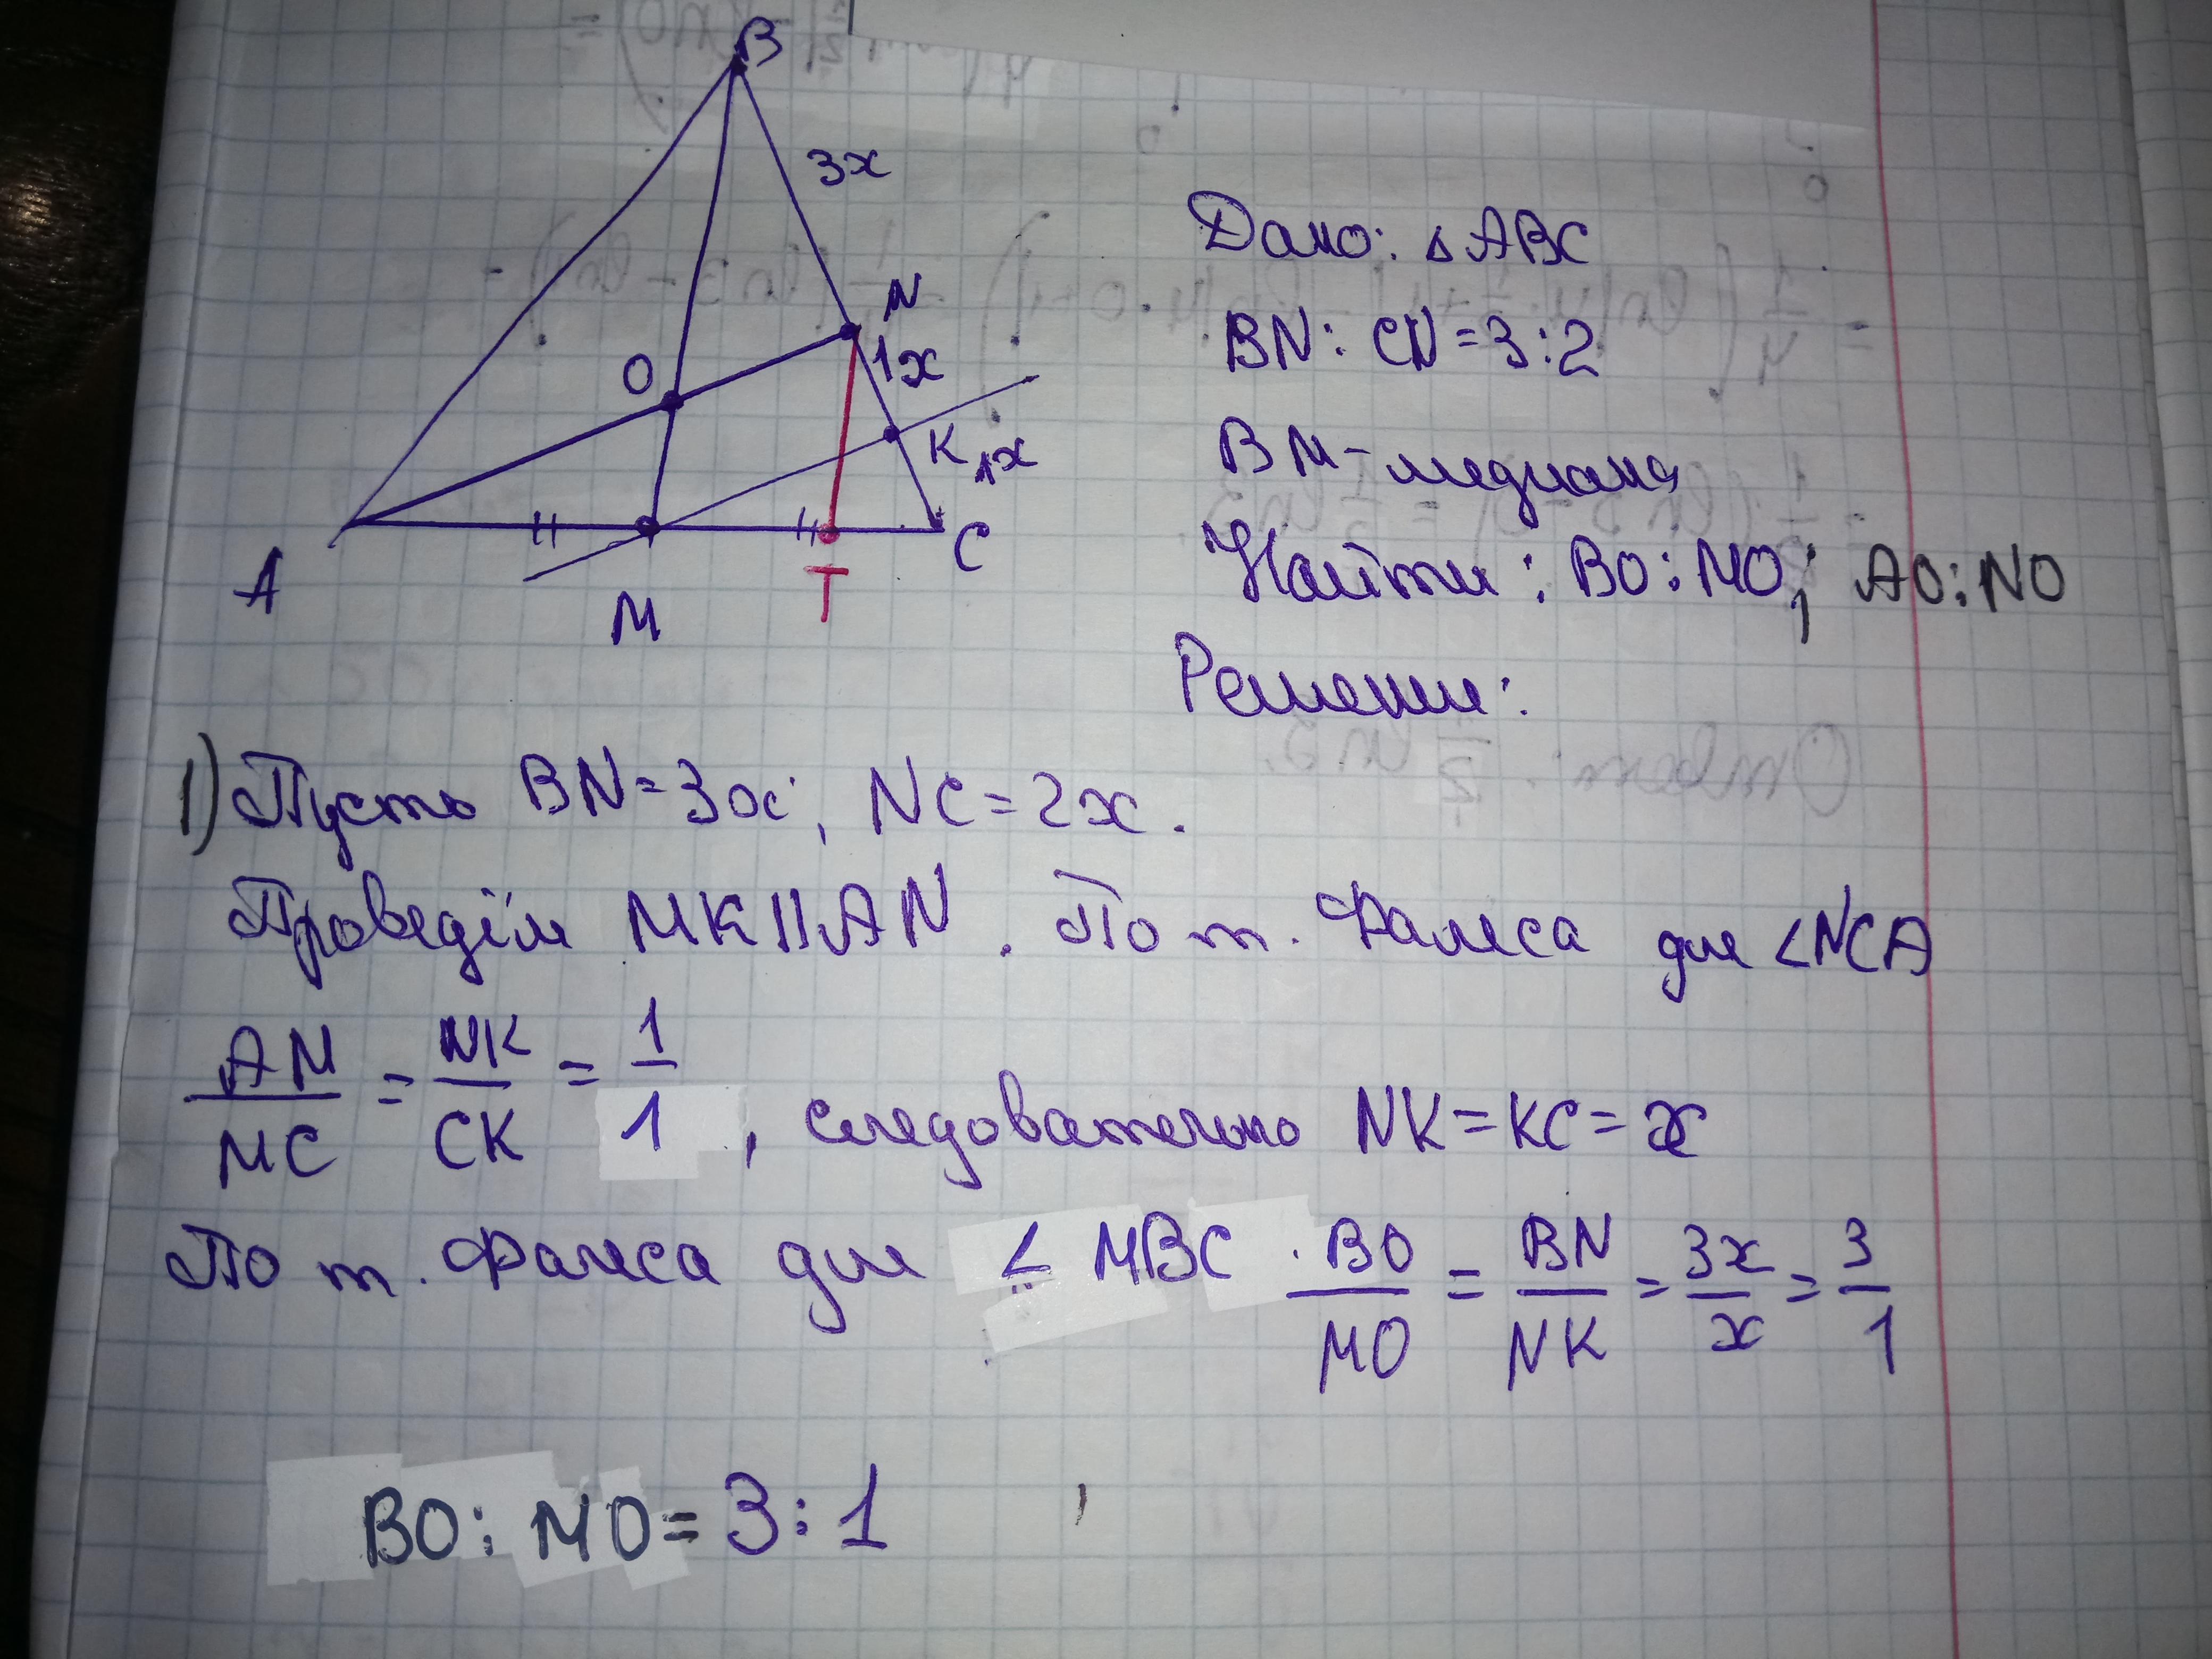 B
3x
N
1x
O
K
1x
A
M
T
C
Дано: △ABC
BN: CN=3:2
BM-медиана
Найти: BO:MO; AO:NO
Решение:
1) Пусть BN=3x; NC=2x.
Проведём MK||AN. По т. Фалеса для ∠NCA
AM/MC = NK/CK = 1/1, следовательно NK=KC=x
По т. Фалеса для ∠MBC BO/MO = BN/NK = 3x/x = 3/1
BO: MO=3:1